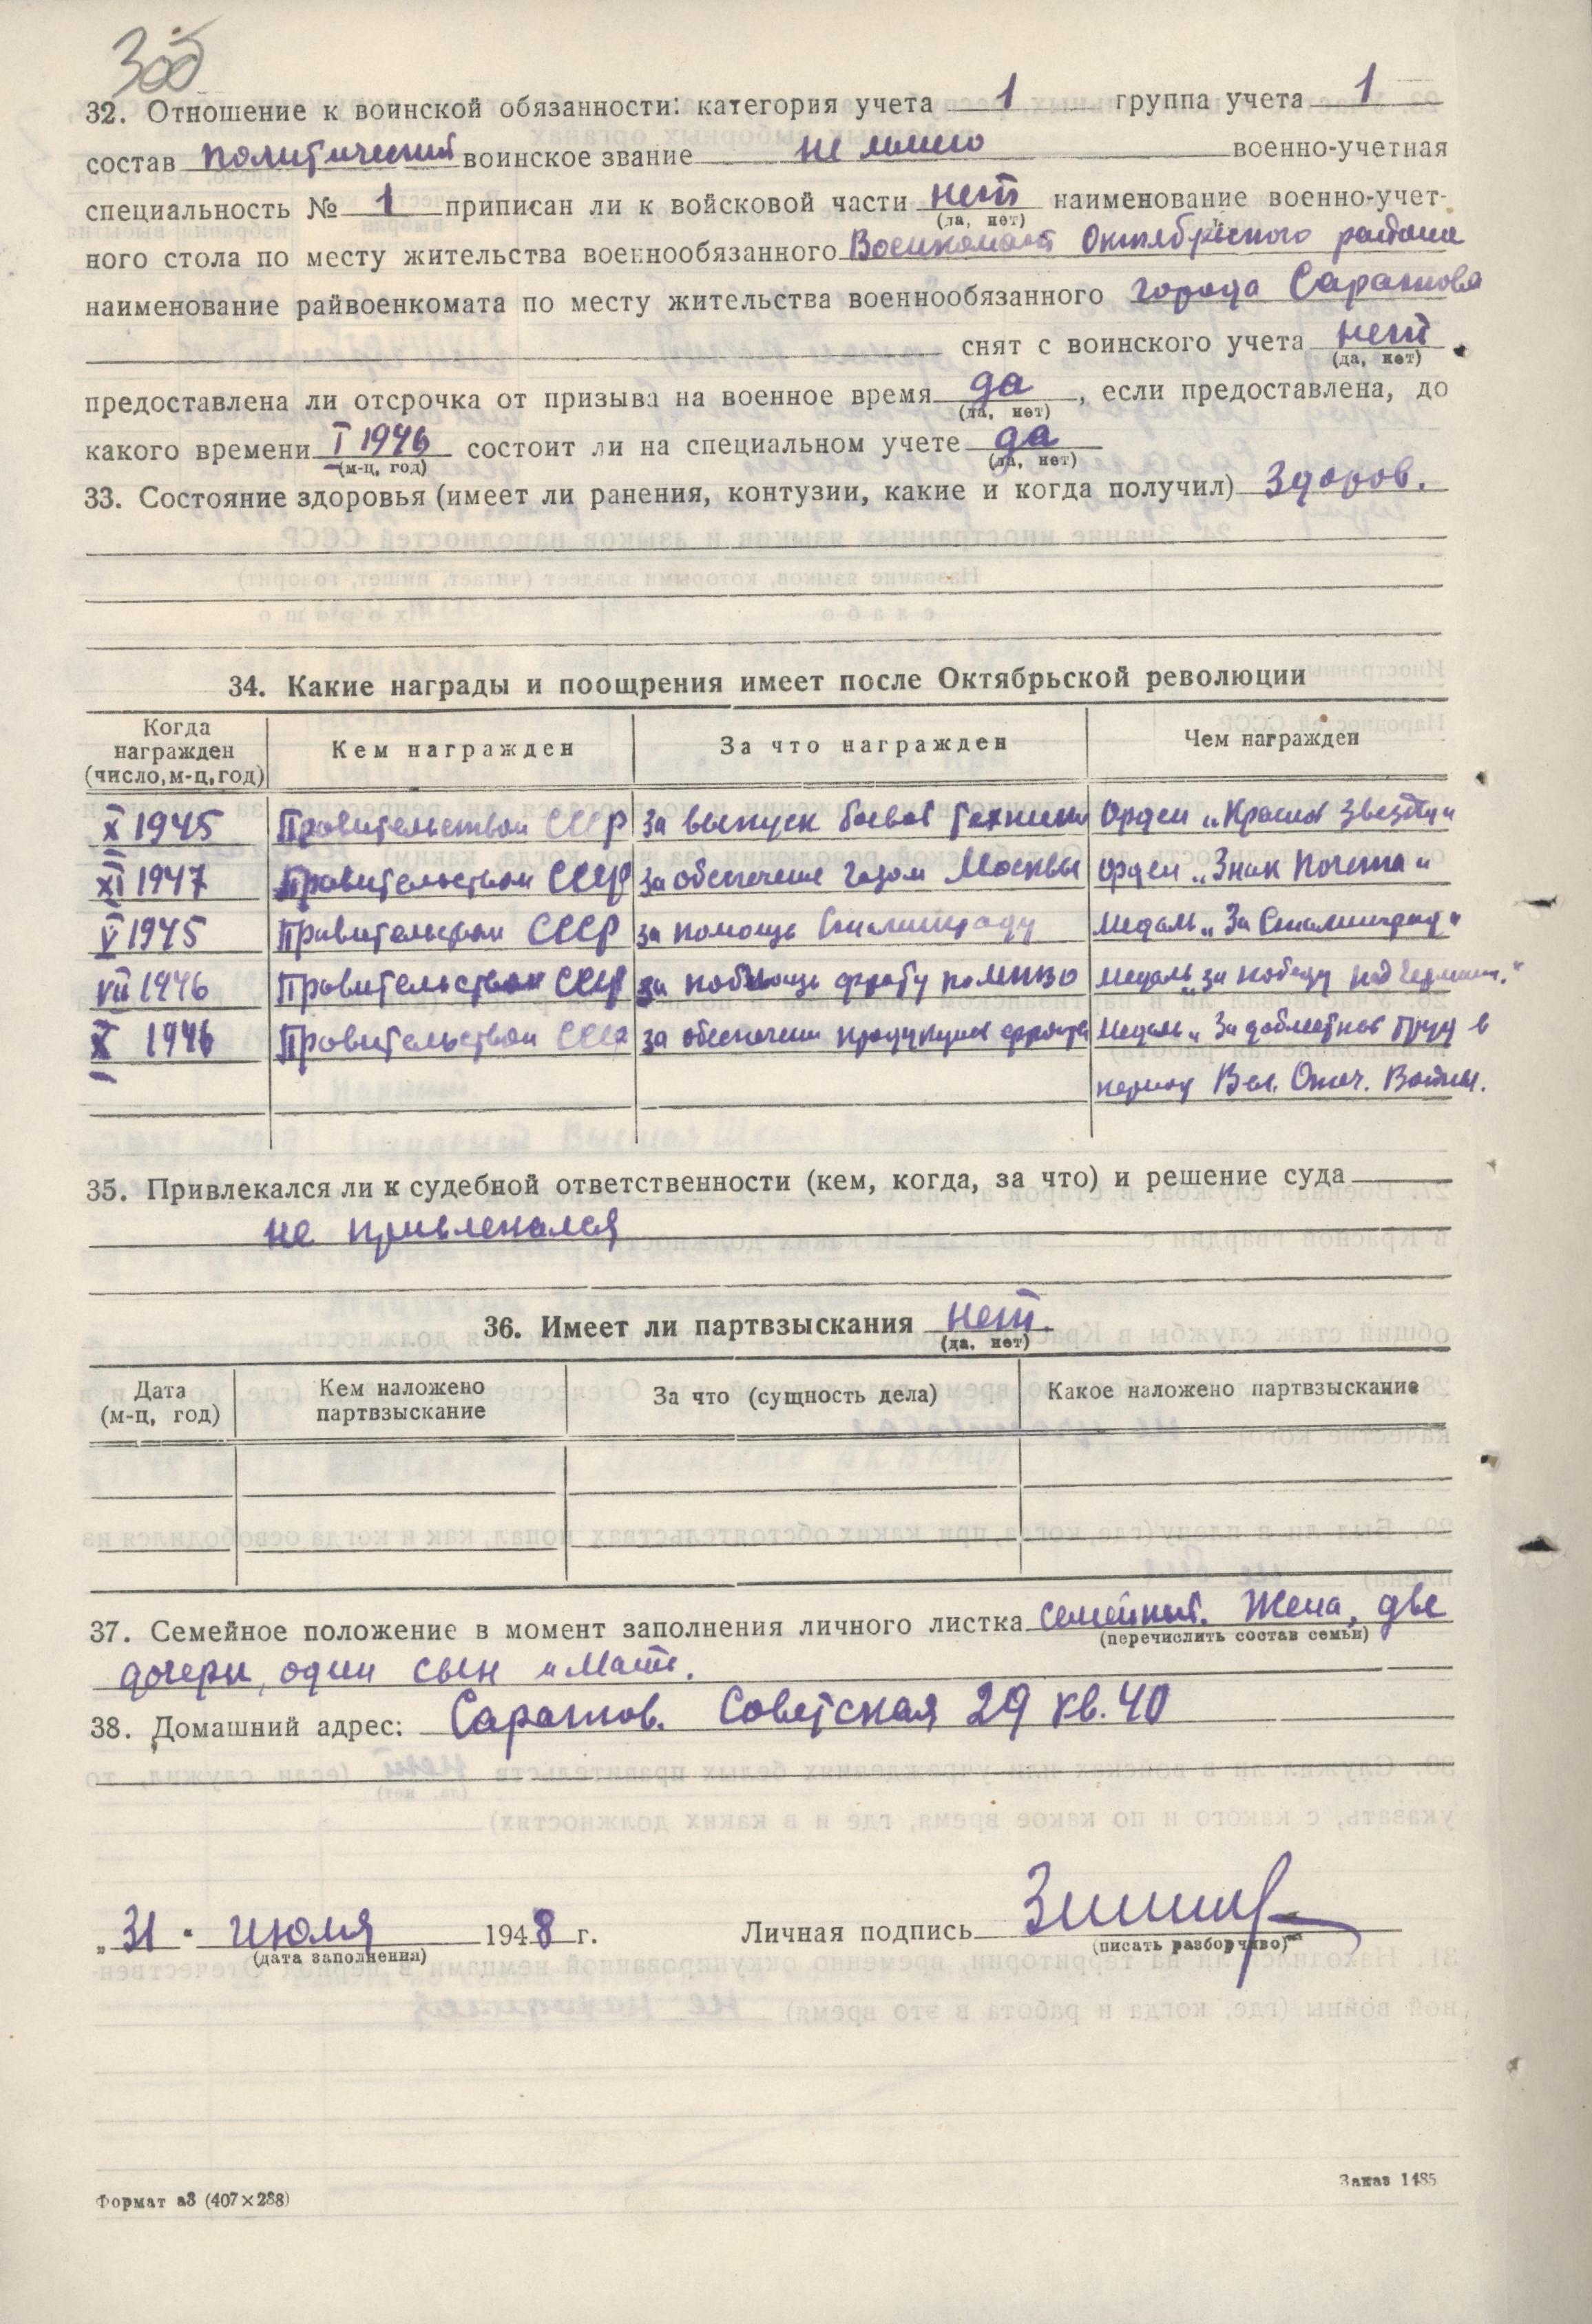 300
32. Отношение к воинской обязанности: категория учета 1 группа учета 1
состав политический воинское звание не имею военно-учетная
специальность № 1 приписан ли к войсковой части нет наименование военно-учет-
(да, нет)
ного стола по месту жительства военнообязанного Военкомат Октябрьского района
наименование райвоенкомата по месту жительства военнообязанного города Саратова
снят с воинского учета нет
(да, нет)
предоставлена ли отсрочка от призыва на военное время да, если предоставлена, до
(да, нет)
какого времени I 1946 состоит ли на специальном учете да
(м-ц, год) (да, нет)
33. Состояние здоровья (имеет ли ранения, контузии, какие и когда получил) Здоров.
34. Какие награды и поощрения имеет после Октябрьской революции
Когда награжден (число, м-ц, год) Кем награжден За что награжден Чем награжден
X 1945 Правительством СССР за выпуск боевой техники Орден „Красной Звезды"
XI 1947 Правительством СССР за обеспечение газом Москвы Орден „Знак Почета"
V 1945 Правительством СССР за помощь Сталинграду Медаль „За Сталинград"
VII 1946 Правительством СССР за помощь фронту Медаль „за победу над Герман."
X 1946 Правительством СССР за обеспечение продукцией фронта Медаль „За доблестный труд в
период Вел. Отеч. Войны.
35. Привлекался ли к судебной ответственности (кем, когда, за что) и решение суда
не привлекался
36. Имеет ли партвзыскания нет.
(да, нет)
Дата (м-ц, год) Кем наложено партвзыскание За что (сущность дела) Какое наложено партвзыскание
37. Семейное положение в момент заполнения личного листка семейный. Жена, две
(перечислить состав семьи)
дочери, один сын и Мать.
38. Домашний адрес: Саратов. Советская 29 кв. 40
„31" июля 1948 г. Личная подпись
(дата заполнения) (писать разборчиво)
Формат а3 (407×288)
Заказ 1485